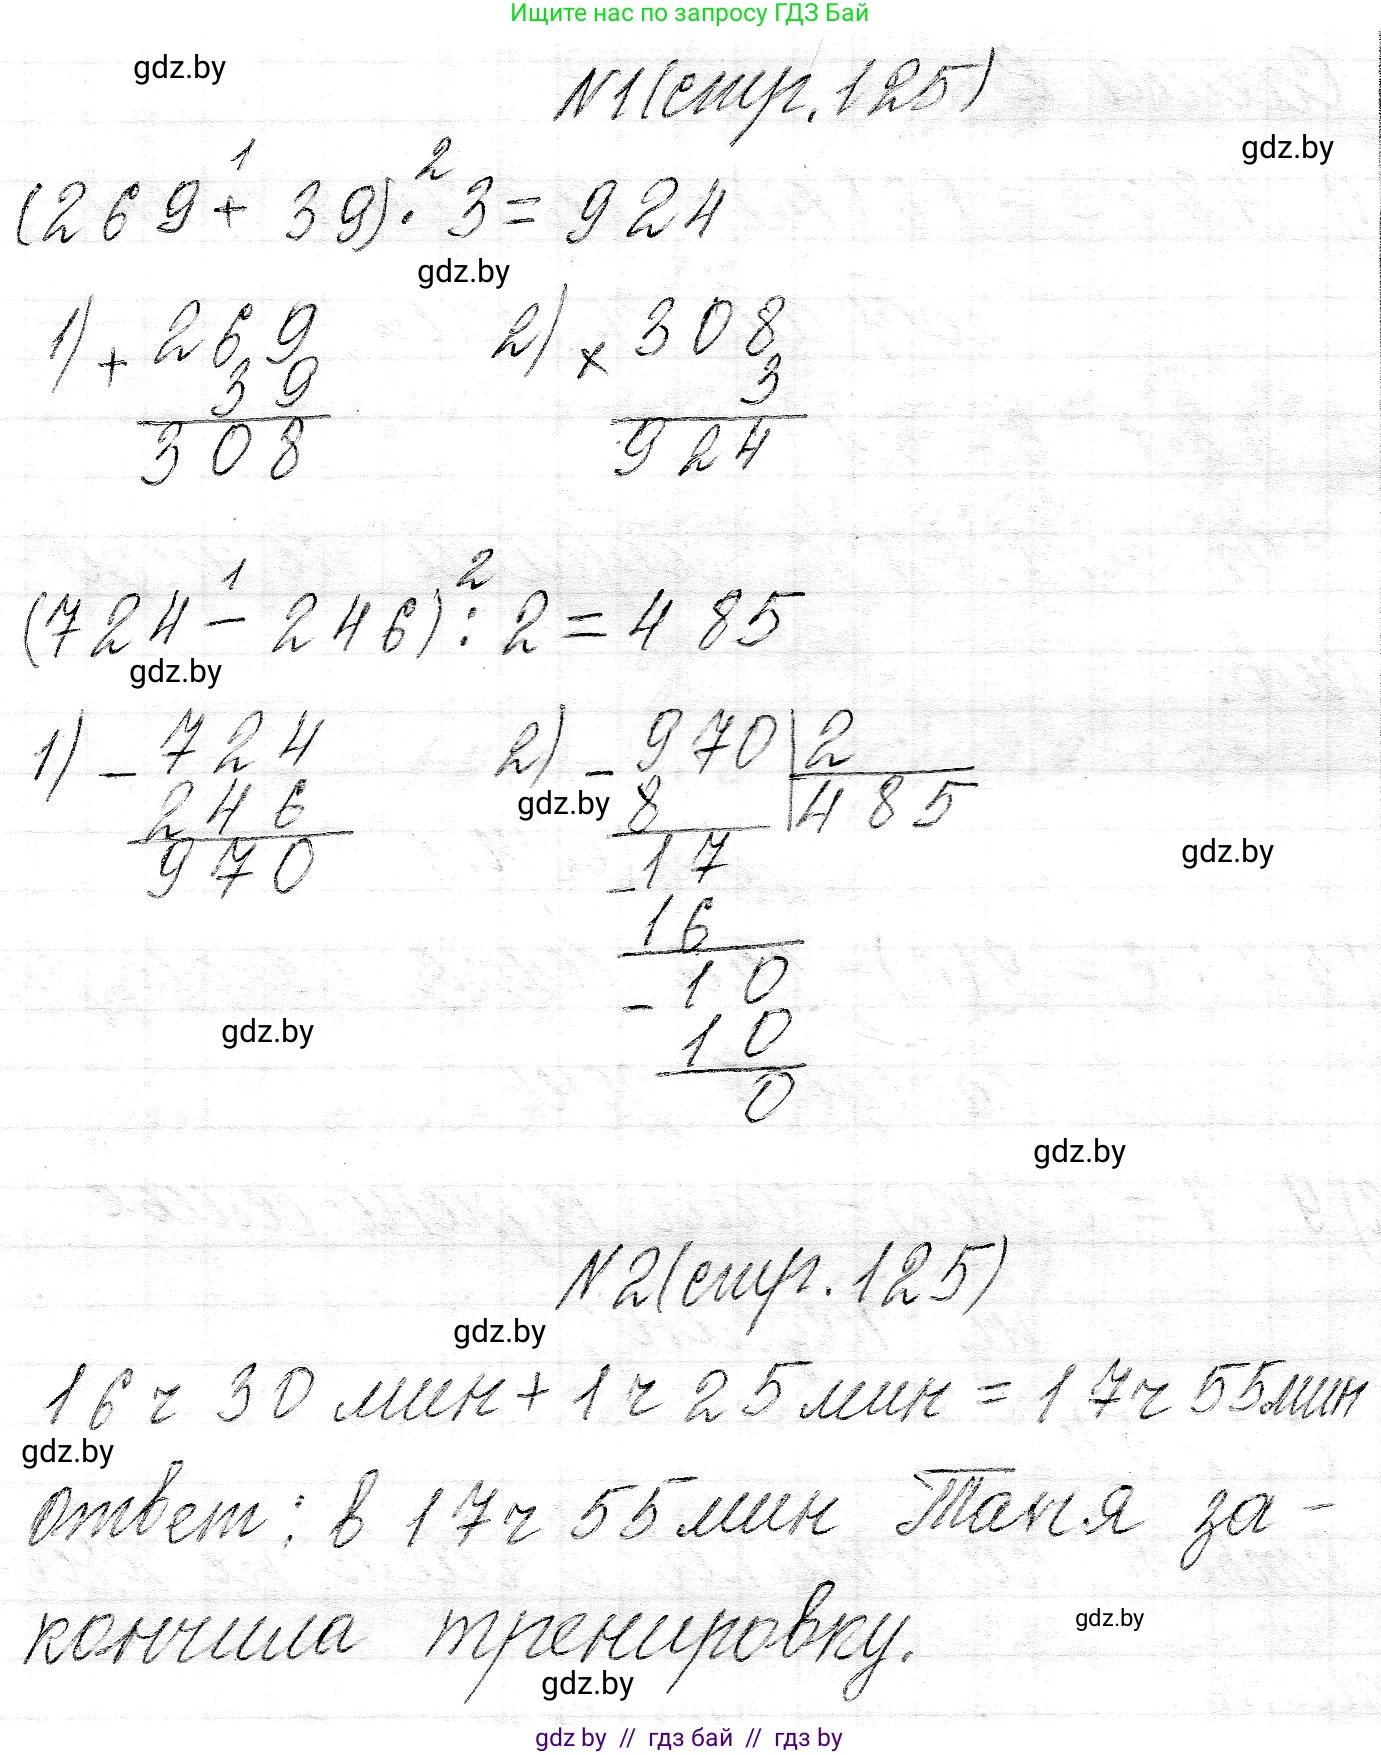 Ищите нас по запросу ГДЗ Бай
gdz.by
N1(стр. 125)
gdz.by
1 2
(269 + 39) · 3 = 924
gdz.by
1) + 269 2) × 308
39 3
308 924
1 2
(724 - 246) : 2 = 485
gdz.by
1) - 724 2) - 970 | 2
246 gdz.by 8 485
970 - 17
gdz.by
16
- 10
gdz.by 10
0
gdz.by
N2(стр. 125)
gdz.by
16 ч 30 мин + 1 ч 25 мин = 17 ч 55 мин
gdz.by
Ответ: в 17 ч 55 мин Таня за-
кончила тренировку.
gdz.by
gdz.by
gdz by // гдз бай // гдз by